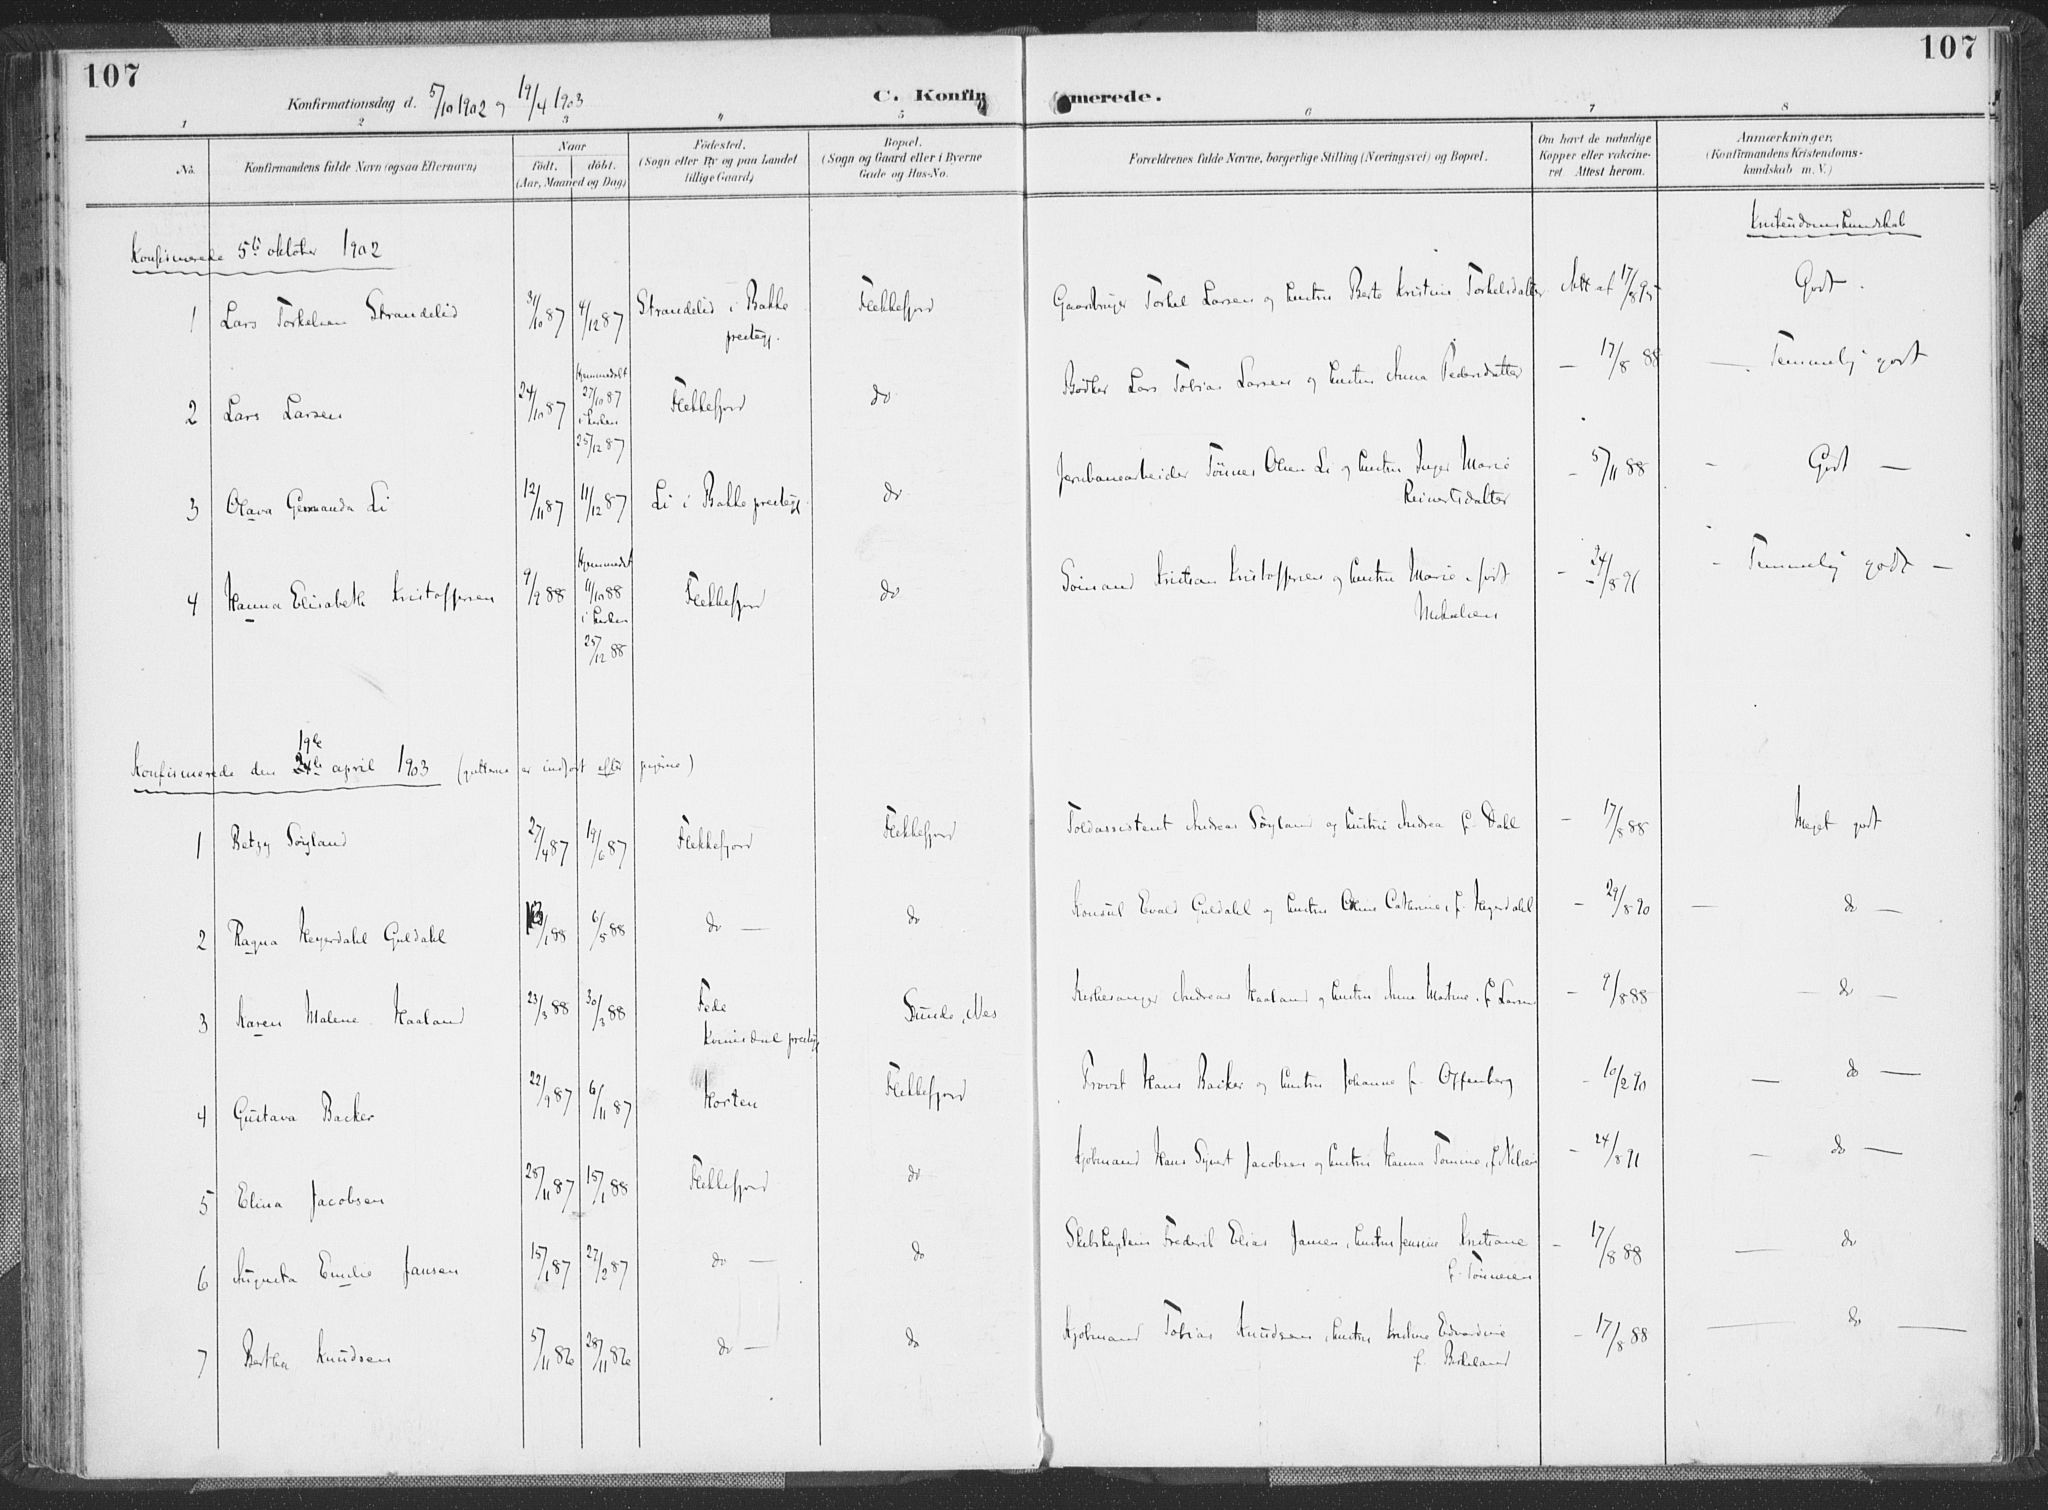 107
107
Konfirmationsdag d. 5/10 1902 og 19/4 1903
C. Konfirmerede.
1 2 3 4 5 6 7 8
No.
Konfirmandens fulde Navn (ogsaa Efternavn)
Naar
født. døbt.
(Aar, Maaned og Dag)
Fødested.
(Sogn eller By og paa Landet
tillige Gaard)
Bopæl.
(Sogn og Gaard eller i Byerne
Gade og Hus-No.
Forældrenes fulde Navne, borgerlige Stilling (Næringsvei) og Bopæl.
Om havt de naturlige
Kopper eller vakcine-
ret. Attest herom.
Anmærkninger.
(Konfirmandens Kristendoms-
kundskab m. V.)
Kristendomskundskab
Konfirmerede 5te oktober 1902
1 Lars Torkelsen Strandelid 31/10 87 4/12 87 Strandelid i Bakke Flekkefjord Gaardbruger Torkel Larsen og hustru Berte Kristine Torkelsdatter Att af 17/8 95 Godt.
prestegj.
2 Lars Larsen 24/10 87 Hjemmedøbt Flekkefjord do Bødker Lars Tobias Larsen og hustru Anna Pedersdatter — 17/8 88 — Temmelig godt
27/10 87
i kirken
25/12 87
3 Olava Germanda Li 12/11 87 11/12 87 Li i Bakke prestegj. do Jernbanearbeider Tønnes Olsen Li og hustru Inger Marie — 5/11 88 — Godt —
Reinertsdatter
4 Hanna Elisabeth Kristoffersen 9/9 88 Hjemmedøbt Flekkefjord do Sømand Kristian Kristoffersen og hustru Marie født — 24/8 91 — Temmelig godt —
Mikalsen
11/10 88
i kirken
25/12 88
19de
Konfirmerede den april 1903 (guttene er indført efter pigerne)
1 Betzy Søyland 27/4 87 19/6 87 Flekkefjord Flekkefjord Toldassistent Andreas Søyland og hustru Andrea f. Dahl — 17/8 88 Meget godt
2 Ragna Heyerdahl Guldahl /1 88 6/5 88 do — do Konsul Evald Guldahl og hustru Cathrine f. Heyerdahl — 29/8 90 — do —
3 Karen Malene Haaland 23/3 88 30/3 88 Fede Sunde, Nes Kirkesanger Andreas Haaland og hustru Anne Martine f. Larsen — 9/8 88 — do —
Kvinesdal prestegj.
4 Gustava Backer 22/9 87 6/11 87 Horten Flekkefjord Provst Hans Backer og hustru Johanne f. Offenberg — 10/2 90 — do —
5 Elina Jacobsen 28/11 87 15/1 88 Flekkefjord do Kjøbmand Hans Syvert Jacobsen og hustru Hanna Tomine f. Nilsen — 24/8 91 — do —
6 Augusta Emilie Jansen 15/1 87 27/2 87 do — do Skibskaptein Frederik Elias Jansen, hustru Jensine Kristiane — 17/8 88 — do
f. Tønnesen
7 Bertha Knudsen 5/11 86 28/11 86 do — do Kjøbmand Tobias Knudsen, hustru Kristine Edvardine — 17/8 88 — do —
f. Birkeland